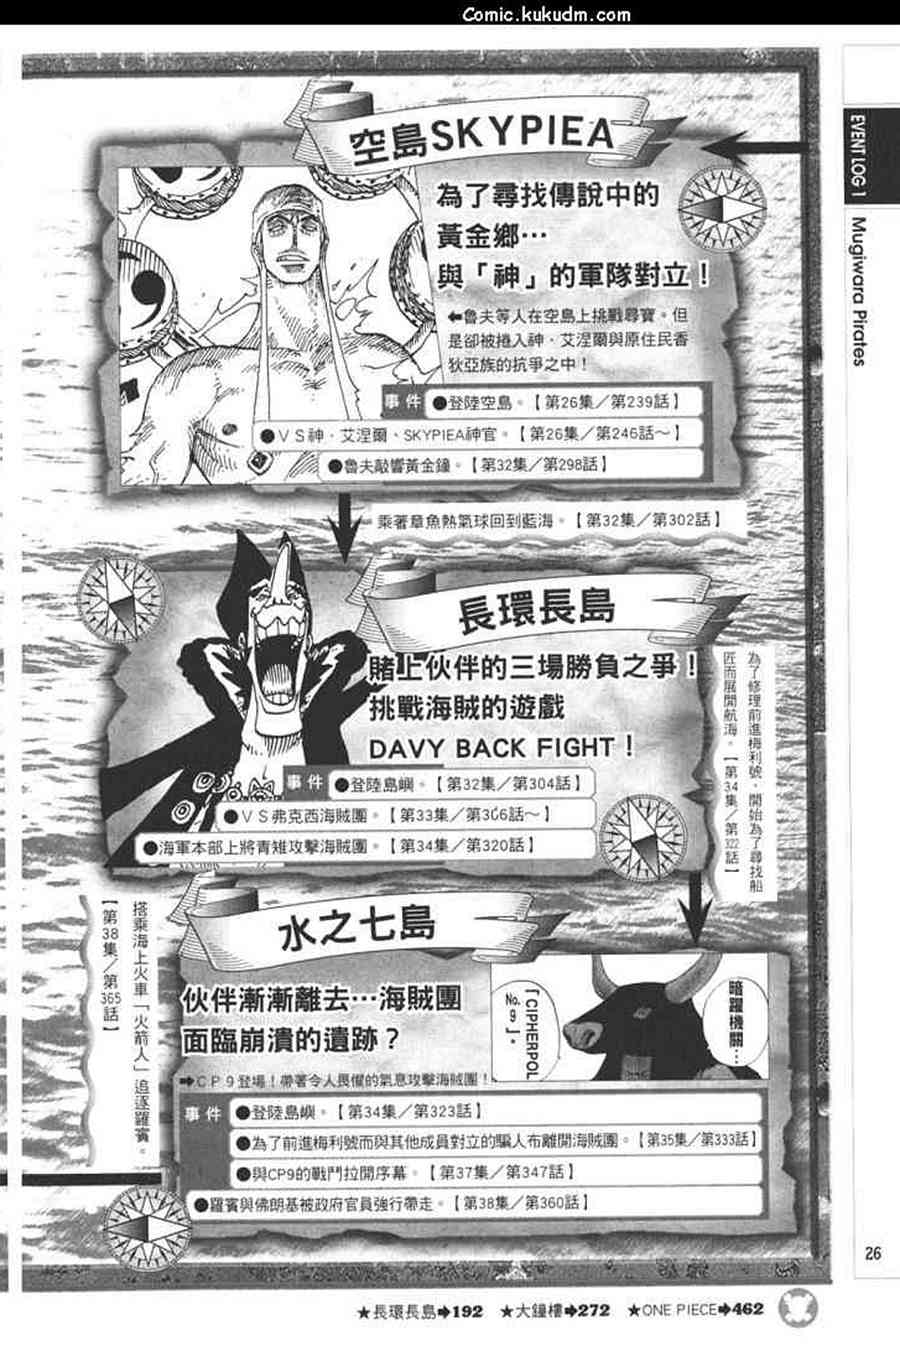 Comic.kukudm.com
EVENT LOG 1
Mugiwara Pirates
空島SKYPIEA
為了尋找傳說中的
黃金鄉…
與「神」的軍隊對立！
⬅魯夫等人在空島上挑戰尋寶。但
是卻被捲入神·艾涅爾與原住民香
狄亞族的抗爭之中！
事件
●登陸空島。【第26集／第239話】
●ＶＳ神·艾涅爾、SKYPIEA神官。【第26集／第246話～】
●魯夫敲響黃金鐘。【第32集／第298話】
乘著章魚熱氣球回到藍海。【第32集／第302話】
長環長島
賭上伙伴的三場勝負之爭！
挑戰海賊的遊戲
DAVY BACK FIGHT！
事件
●登陸島嶼。【第32集／第304話】
●ＶＳ弗克西海賊團。【第33集／第306話～】
●海軍本部上將青雉攻擊海賊團。【第34集／第320話】
為了修理前進梅利號，開始為了尋找船
匠而展開航海。【第34集／第322話】
水之七島
伙伴漸漸離去…海賊團
面臨崩潰的遺跡？
暗躍機關…
「CIPHERPOL
No.9」．
➡ＣＰ９登場！帶著令人畏懼的氣息攻擊海賊團！
事件
●登陸島嶼。【第34集／第323話】
●為了前進梅利號而與其他成員對立的騙人布離開海賊團。【第35集／第333話】
●與CP9的戰鬥拉開序幕。【第37集／第347話】
●羅賓與佛朗基被政府官員強行帶走。【第38集／第360話】
搭乘海上火車「火箭人」追逐羅賓。
【第38集／第365話】
26
★長環長島➡192 ★大鐘樓➡272 ★ONE PIECE➡462